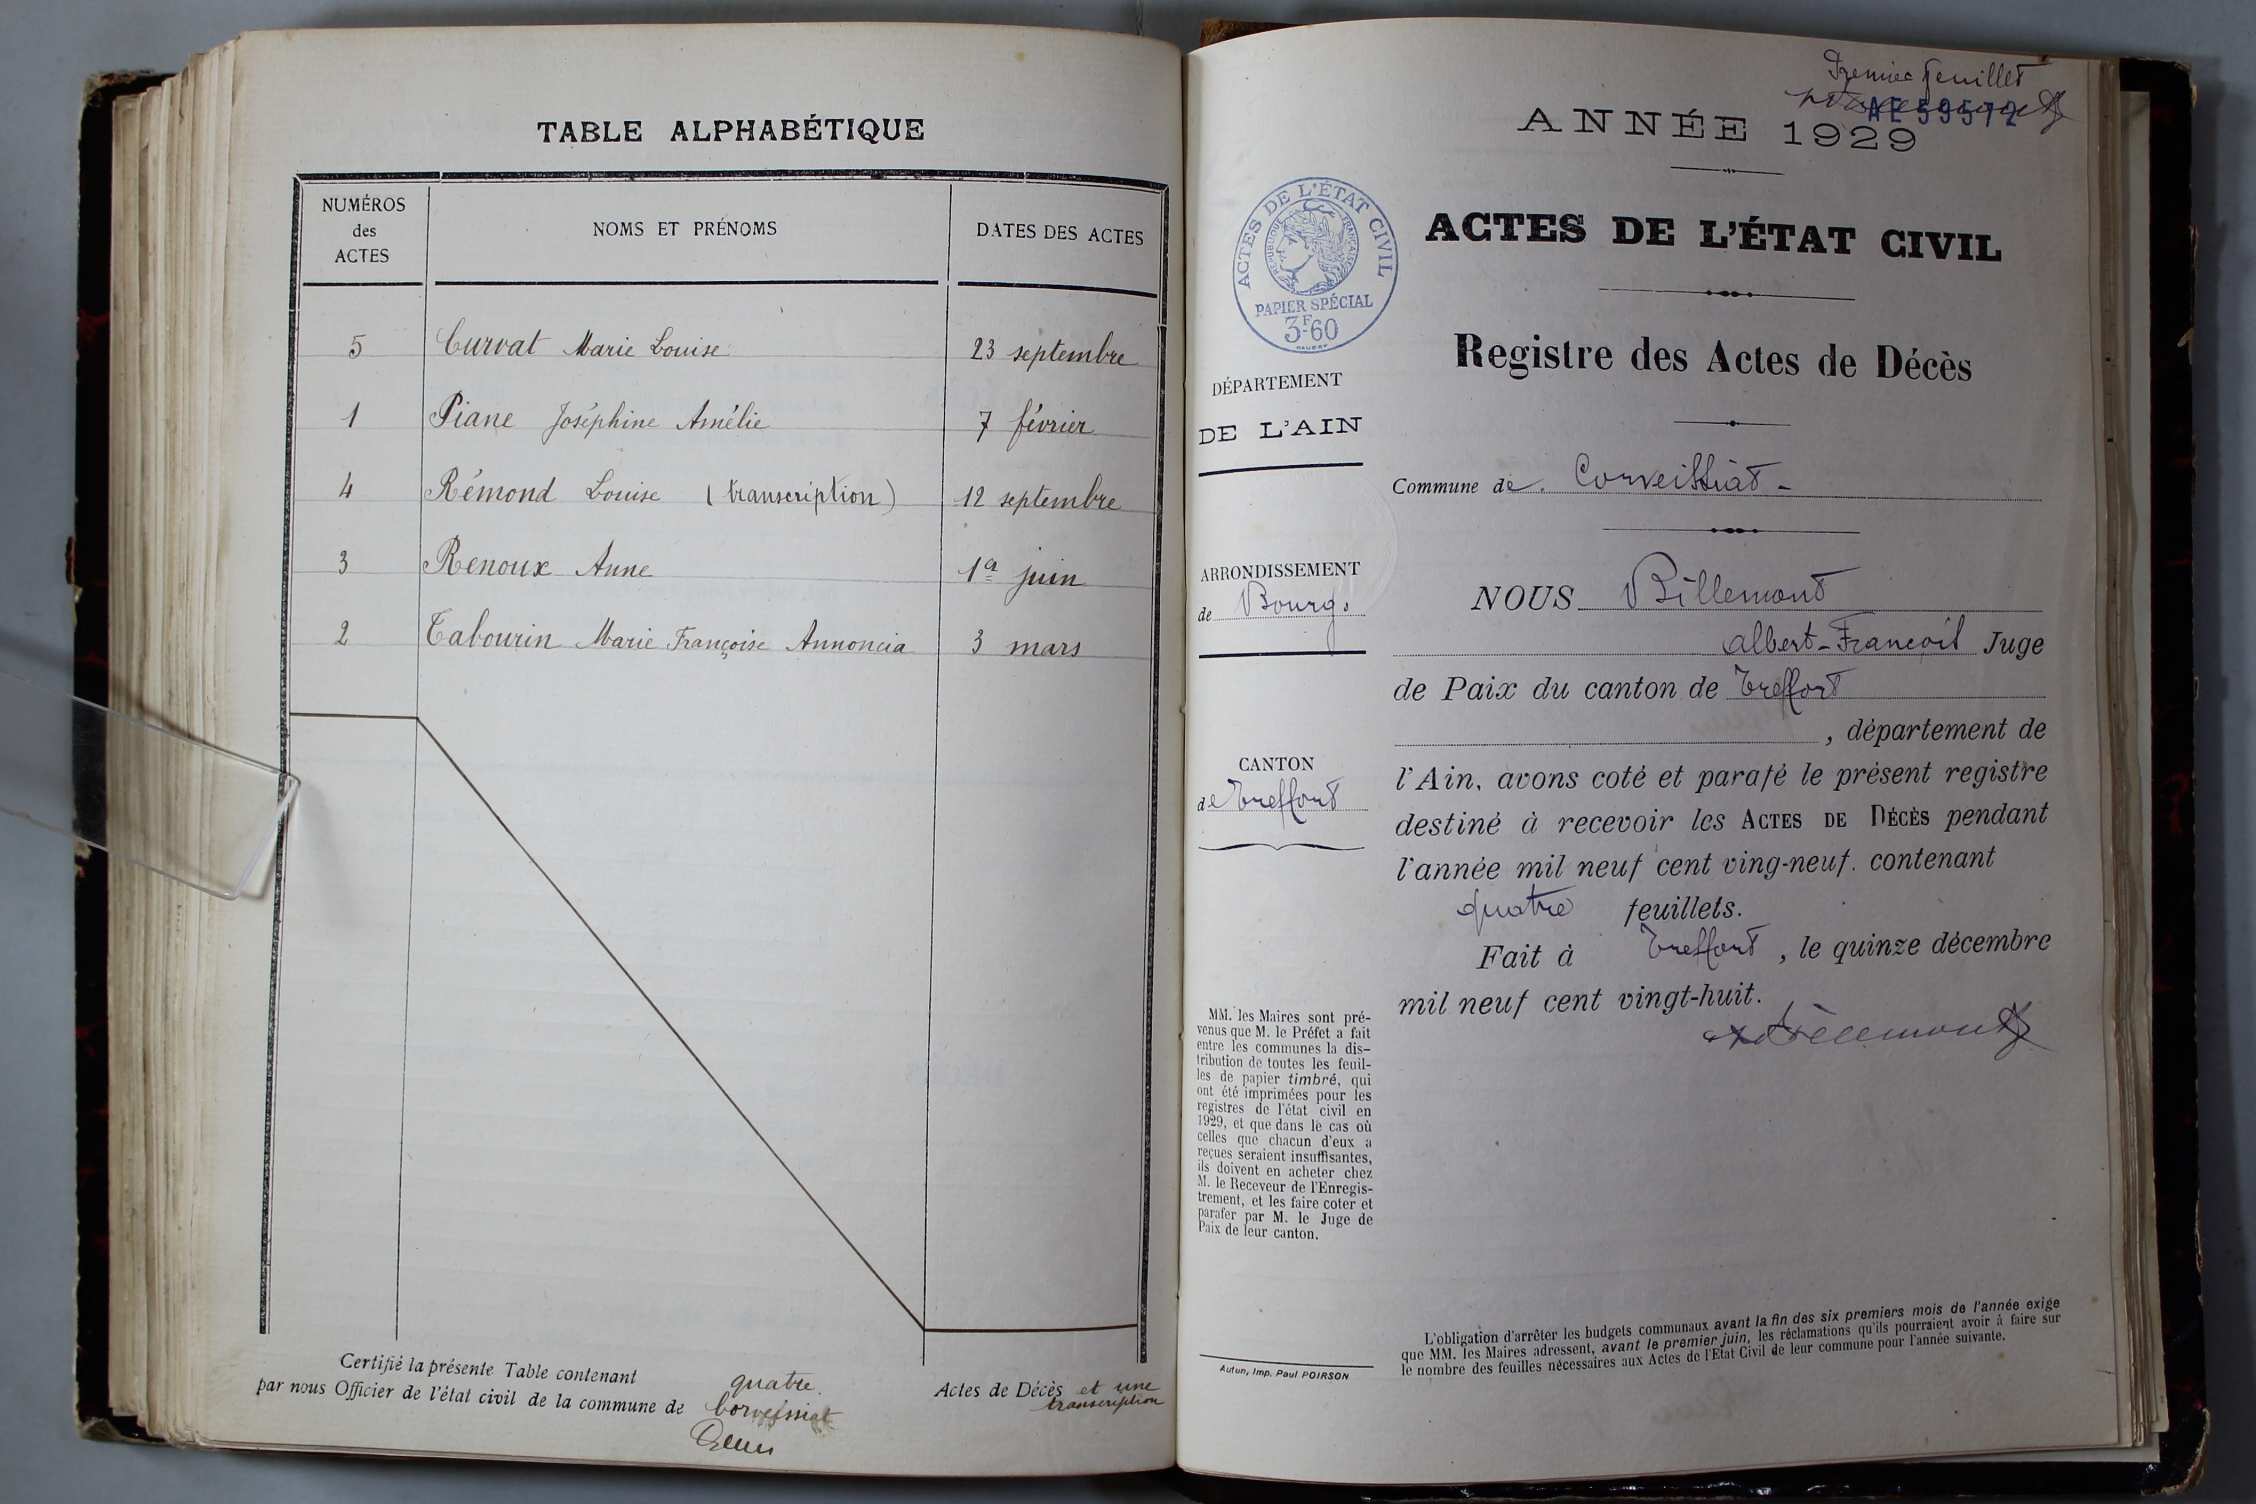 TABLE ALPHABÉTIQUE
NUMÉROS
des
ACTES
NOMS ET PRÉNOMS
DATES DES ACTES
5 Curvat Marie Louise 23 septembre
1 Piane Joséphine Amélie 7 février
4 Rémond Louise (transcription) 12 septembre
3 Renoux Anne 1er juin
2 Tabourin Marie Françoise Annoncia 3 mars
Certifié la présente Table contenant quatre Actes de Décès et une
transcription
par nous Officier de l'état civil de la commune de Corveissiat
Premier feuillet
AE 59572
ANNÉE 1929
ACTES DE L'ÉTAT CIVIL
RÉPUBLIQUE FRANÇAISE
PAPIER SPÉCIAL
3F60
ACTES DE L'ÉTAT CIVIL
Registre des Actes de Décès
DÉPARTEMENT
DE L'AIN
Commune de Corveissiat
ARRONDISSEMENT
de Bourg.
CANTON
de Treffort
NOUS Billemont
Albert-François Juge
de Paix du canton de Treffort
, département de
l'Ain, avons coté et parafé le présent registre
destiné à recevoir les ACTES DE DÉCÈS pendant
l'année mil neuf cent ving-neuf. contenant
quatre feuillets.
Fait à Treffort, le quinze décembre
mil neuf cent vingt-huit.
Billemont
MM. les Maires sont pré-
venus que M. le Préfet a fait
entre les communes la dis-
tribution de toutes les feuil-
les de papier timbré, qui
ont été imprimées pour les
registres de l'état civil en
1929, et que dans le cas où
celles que chacun d'eux a
reçues seraient insuffisantes,
ils doivent en acheter chez
M. le Receveur de l'Enregis-
trement, et les faire coter et
parafer par M. le Juge de
Paix de leur canton.
Autun, Imp. Paul POIRSON
L'obligation d'arrêter les budgets communaux avant la fin des six premiers mois de l'année exige
que MM. les Maires adressent, avant le premier juin, les réclamations qu'ils pourraient avoir à faire sur
le nombre des feuilles nécessaires aux Actes de l'Etat Civil de leur commune pour l'année suivante.